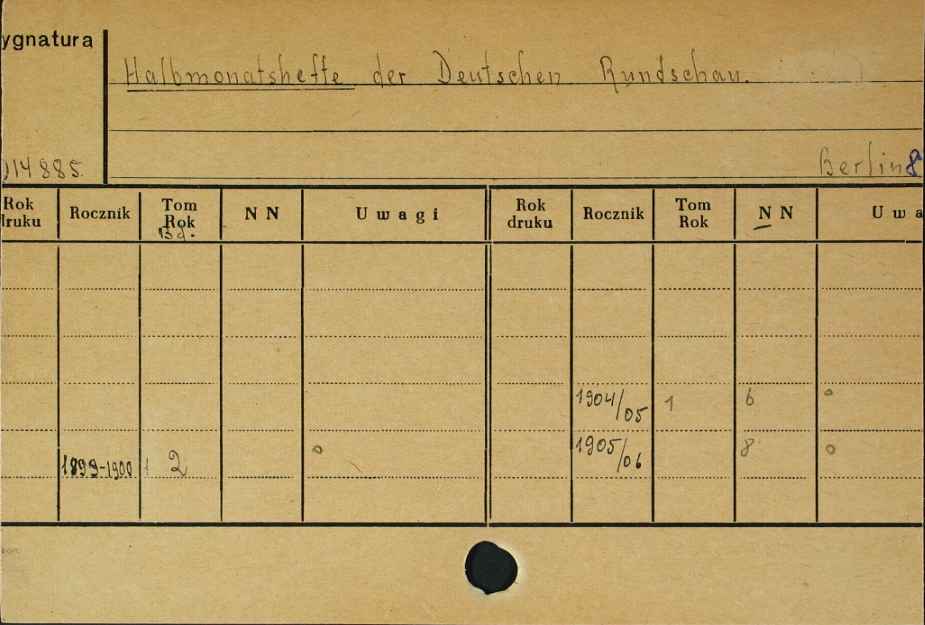 ygnatura
Halbmonatshefte der Deutschen Rundschau.
)14885.
Berlin 8
Rok druku Rocznik Tom Rok Bd. N N Uwagi Rok druku Rocznik Tom Rok N N Uwa
1904/05 1 6 o
1905/06 8 o
1899-1900 1 2 o